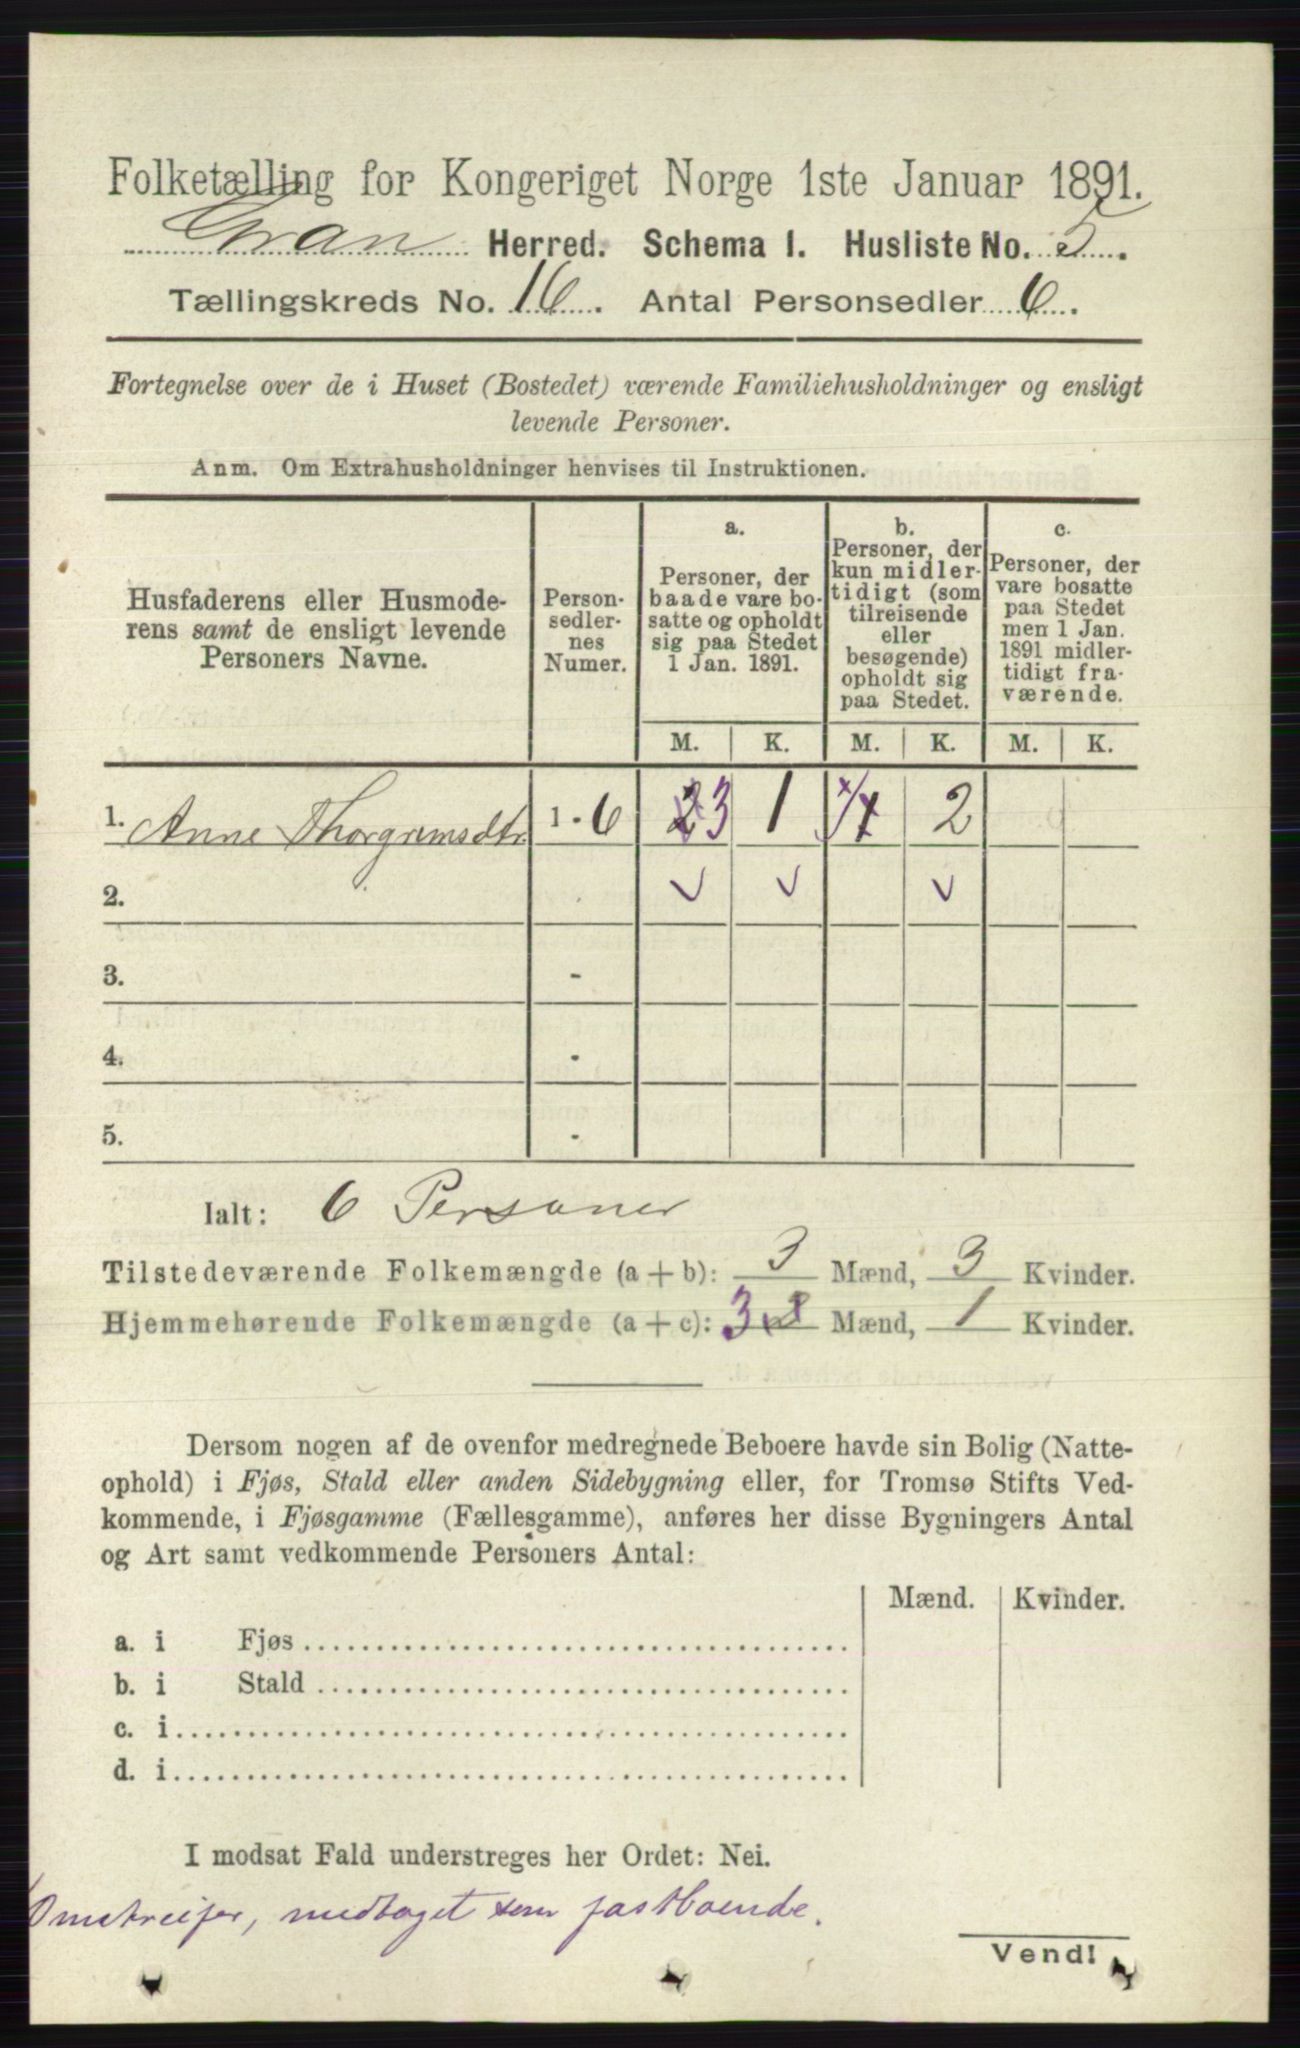 Folketælling for Kongeriget Norge 1ste Januar 1891.
Gran Herred. Schema I. Husliste No. 5.
Tællingskreds No. 16. Antal Personsedler 6.
Fortegnelse over de i Huset (Bostedet) værende Familiehusholdninger og ensligt
levende Personer.
Anm. Om Extrahusholdninger henvises til Instruktionen.
Husfaderens eller Husmode-
rens samt de ensligt levende
Personers Navne.
Person-
sedler-
nes
Numer.
a.
Personer, der
baade vare bo-
satte og opholdt
sig paa Stedet
1 Jan. 1891.
b.
Personer, der
kun midler-
tidigt (som
tilreisende
eller
besøgende)
opholdt sig
paa Stedet.
c.
Personer, der
vare bosatte
paa Stedet
men 1 Jan.
1891 midler-
tidigt fra-
værende.
M. K. M. K. M. K.
1. Anne Thorgrimsdtr. 1 - 6 2 3 1 x/1 2
2. ✓ ✓ ✓
3. -
4. -
5. -
Ialt: 6 Personer
Tilstedeværende Folkemængde (a + b): 3 Mænd, 3 Kvinder.
Hjemmehørende Folkemængde (a + c): 3 2 Mænd, 1 Kvinder.
Dersom nogen af de ovenfor medregnede Beboere havde sin Bolig (Natte-
ophold) i Fjøs, Stald eller anden Sidebygning eller, for Tromsø Stifts Ved-
kommende, i Fjøsgamme (Fællesgamme), anføres her disse Bygningers Antal
og Art samt vedkommende Personers Antal:
Mænd. Kvinder.
a. i Fjøs
b. i Stald
c. i
d. i
I modsat Fald understreges her Ordet: Nei.
Omstreifer, medtaget som fastboende.
Vend!